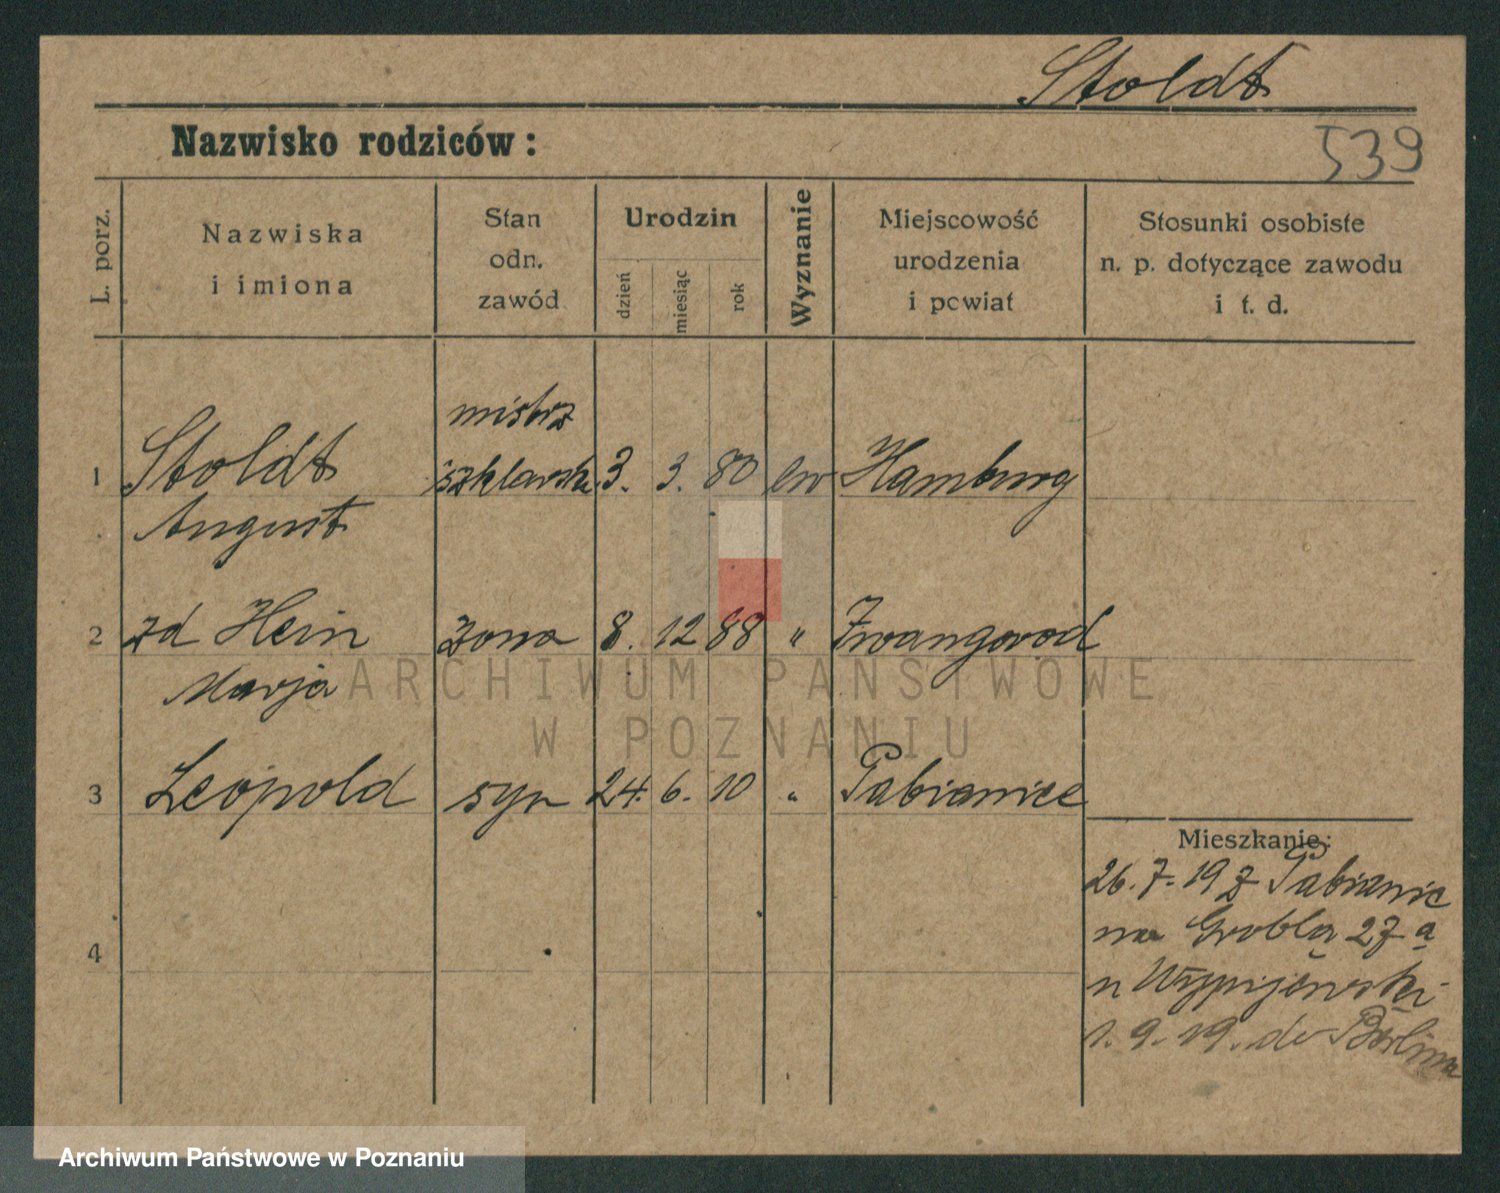 Stoldt
Nazwisko rodziców:
539
L. porz.
Nazwiska
i imiona
Stan
odn.
zawód
Urodzin
dzień
miesiąc
rok
Wyznanie
Miejscowość
urodzenia
i powiat
Stosunki osobiste
n. p. dotyczące zawodu
i t. d.
mistrz
1 Stoldt szklarski 3. 3. 80 ew Hamburg
August
2 zd Hein żona 8. 12 88 " Iwangorod
Marja
3 Leopold syn 24. 6. 10 " Pabianice
4
Mieszkanie:
26.7.19 z Pabianic
na Groblą 27a
u Wypijewski
1.9.19. do Berlina
ARCHIWUM PAŃSTWOWE
W POZNANIU
Archiwum Państwowe w Poznaniu